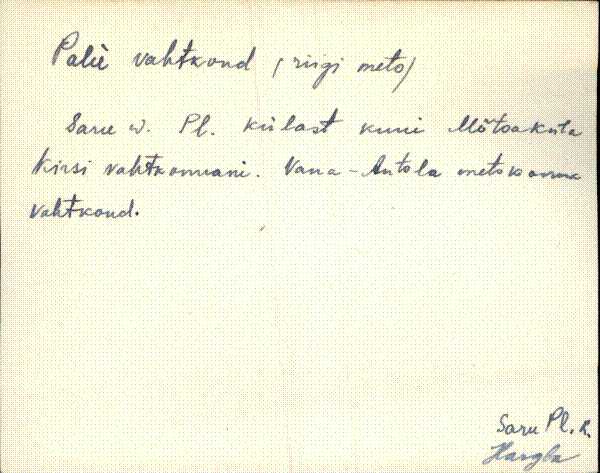 Paliė vahtkond (riigi mets)
Saru w. Pl. külast kuni Mõtsaküla
Kirsi vahtkonnani. Vana-Antsla metskonna
vahtkond.
Saru Pl. k.
Hargla